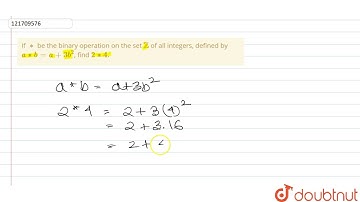 121709576
if * be the binary operation on the set Z of all integers, defined by
a * b = a + 3b², find 2 * 4.
a * b = a + 3b²
2 * 4 = 2 + 3(4)²
= 2 + 3.16
= 2 +
doubtnut